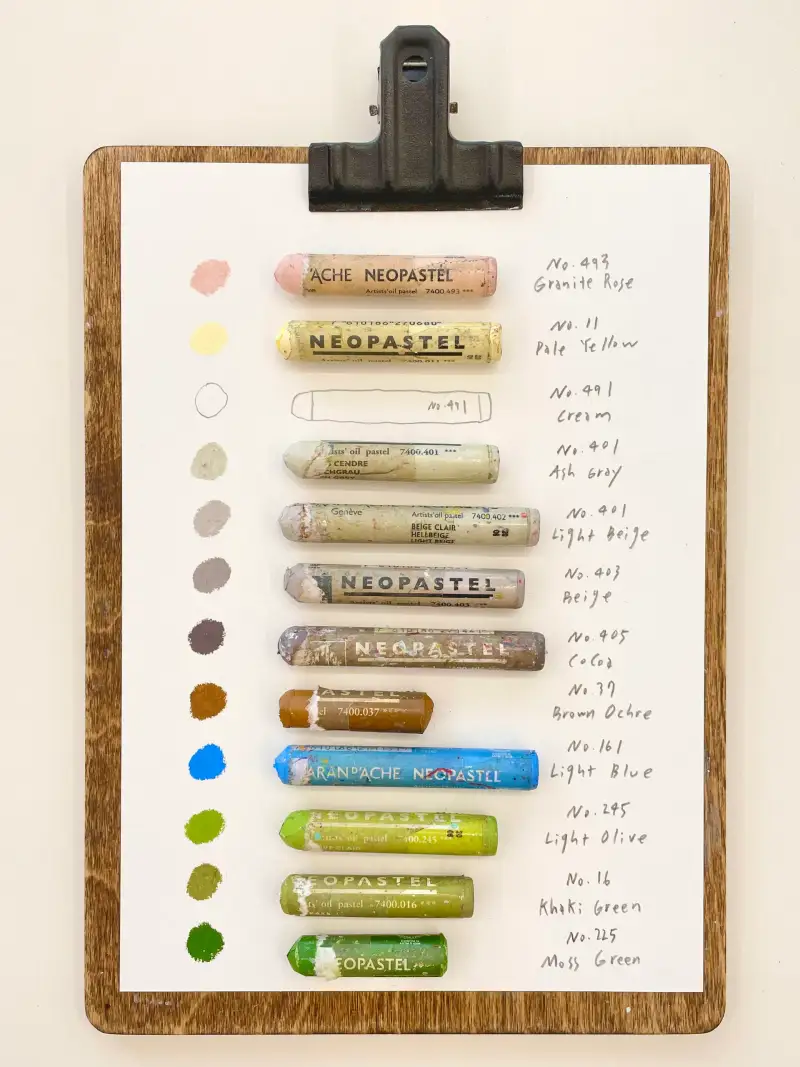 'ACHE NEOPASTEL
Artists' oil pastel 7400.493 ***
No. 493
Granite Rose
NEOPASTEL
No. 11
Pale Yellow
No. 491
No. 491
Cream
ists' oil pastel 7400.401 ***
CENDRE
CHGRAU
No. 401
Ash Gray
Genève Artists' oil pastel 7400.402 ***
BEIGE CLAIR
HELLBEIGE
LIGHT BEIGE
No. 401
Light Beige
NEOPASTEL
No. 403
Beige
NEOPASTEL
No. 405
Cocoa
ASTEL
el 7400.037 ***
No. 37
Brown Ochre
ARAN D'ACHE NEOPASTEL
No. 161
Light Blue
NEOPASTEL
oil pastel 400.245 ***
No. 245
Light Olive
EOPASTEL
ts' oil pastel 7400.016 ***
No. 16
Khaki Green
EOPASTEL
No. 225
Moss Green